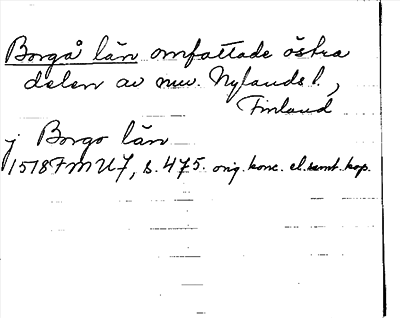 Borgå län omfattade östra
delen av nuv. Nylands l.,
Finland
j Borgo län
1578 FMU 7, s. 475. orig. konc. el. samt. kop.